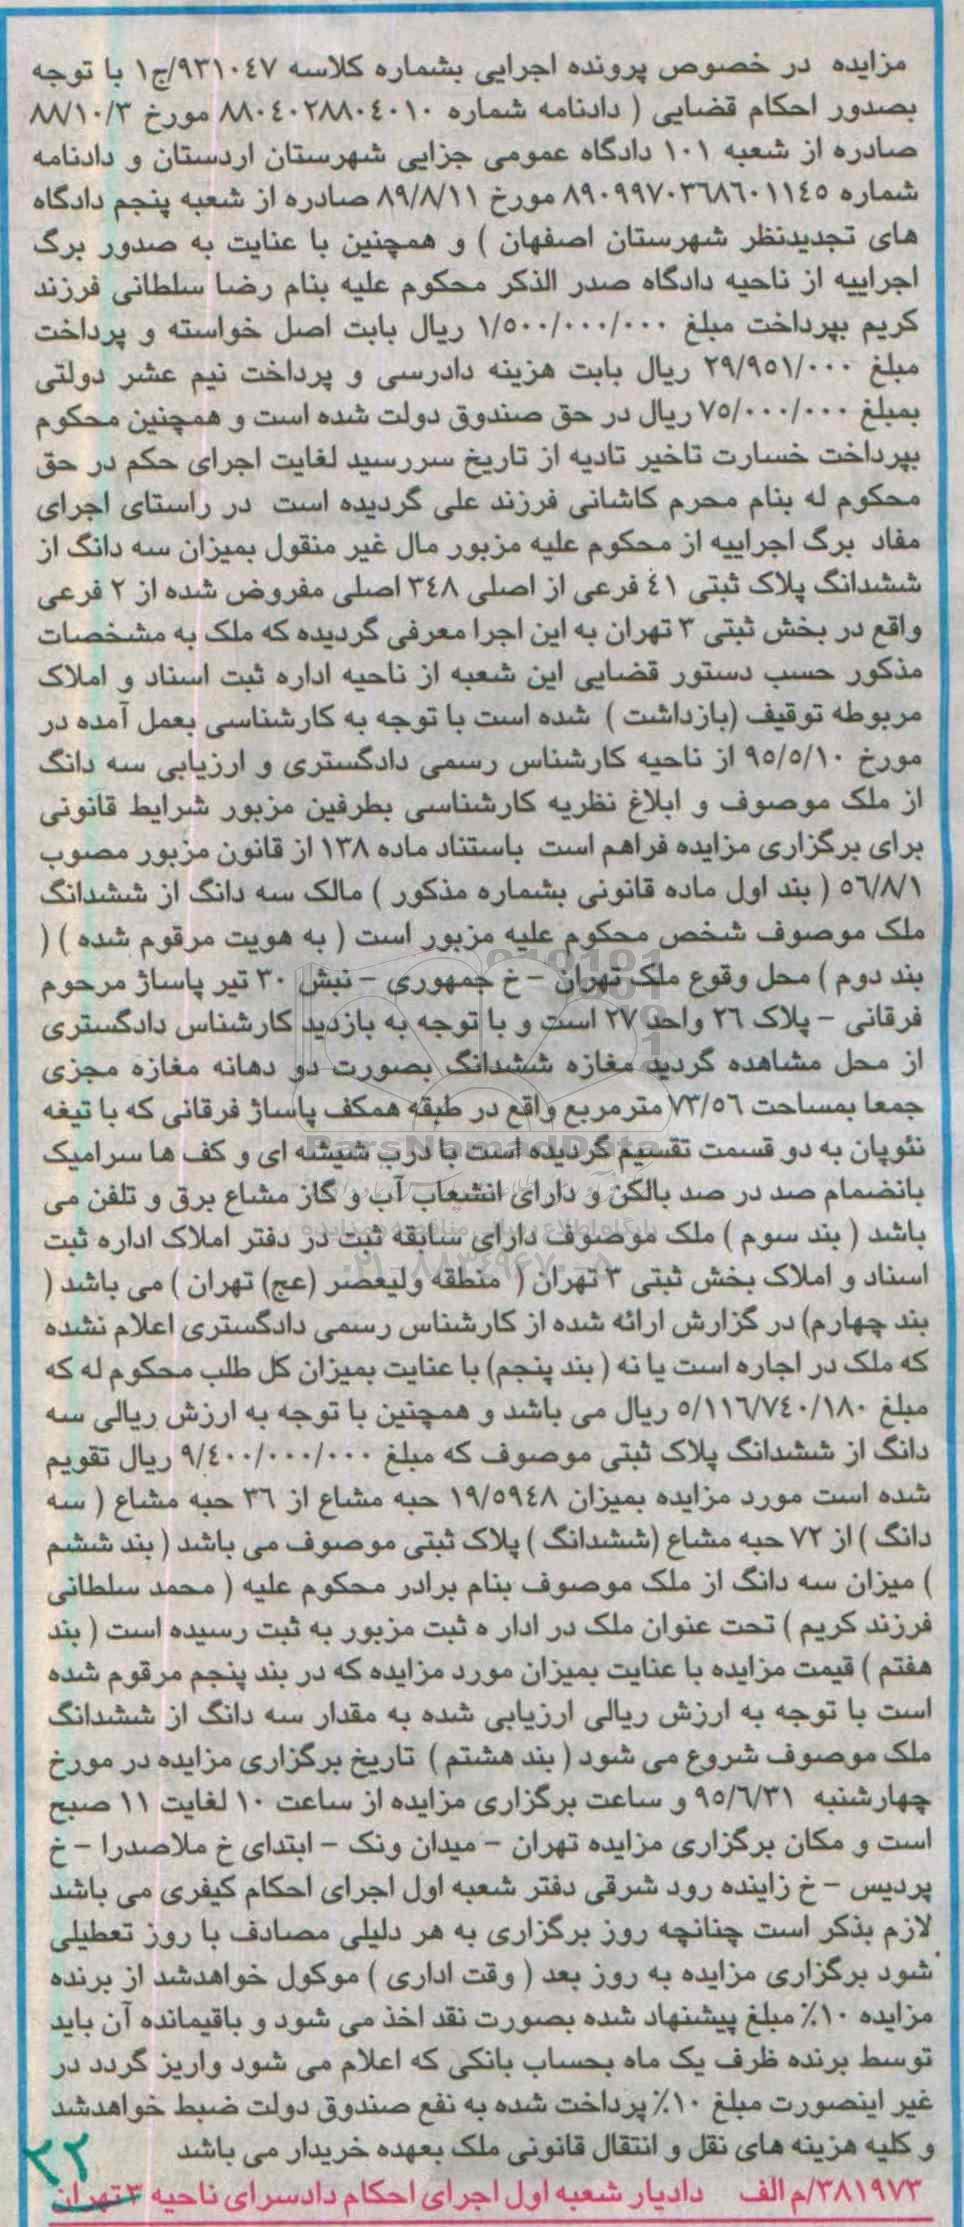 مزایده در خصوص پرونده اجرایی بشماره کلاسه ۹۳۱۰٤۷/ج۱ با توجه
بصدور احکام قضایی ( دادنامه شماره ۸۸۰٤۰۲۸۸۰٤۰۱۰ مورخ ۸۸/۱۰/۳
صادره از شعبه ۱۰۱ دادگاه عمومی جزایی شهرستان اردستان و دادنامه
شماره ۸۹۰۹۹۷۰۳٦۸٦۰۱۱٤٥ مورخ ۸۹/۸/۱۱ صادره از شعبه پنجم دادگاه
های تجدیدنظر شهرستان اصفهان ) و همچنین با عنایت به صدور برگ
اجراییه از ناحیه دادگاه صدر الذکر محکوم علیه بنام رضا سلطانی فرزند
کریم بپرداخت مبلغ ۱/٥۰۰/۰۰۰/۰۰۰ ریال بابت اصل خواسته و پرداخت
مبلغ ۲۹/۹٥۱/۰۰۰ ریال بابت هزینه دادرسی و پرداخت نیم عشر دولتی
بمبلغ ۷٥/۰۰۰/۰۰۰ ریال در حق صندوق دولت شده است و همچنین محکوم
بپرداخت خسارت تاخیر تادیه از تاریخ سررسید لغایت اجرای حکم در حق
محکوم له بنام محرم کاشانی فرزند علی گردیده است در راستای اجرای
مفاد برگ اجراییه از محکوم علیه مزبور مال غیر منقول بمیزان سه دانگ از
ششدانگ پلاک ثبتی ٤۱ فرعی از اصلی ۳٤۸ اصلی مفروض شده از ۲ فرعی
واقع در بخش ثبتی ۳ تهران به این اجرا معرفی گردیده که ملک به مشخصات
مذکور حسب دستور قضایی این شعبه از ناحیه اداره ثبت اسناد و املاک
مربوطه توقیف (بازداشت ) شده است با توجه به کارشناسی بعمل آمده در
مورخ ۹٥/٥/۱۰ از ناحیه کارشناس رسمی دادگستری و ارزیابی سه دانگ
از ملک موصوف و ابلاغ نظریه کارشناسی بطرفین مزبور شرایط قانونی
برای برگزاری مزایده فراهم است باستناد ماده ۱۳۸ از قانون مزبور مصوب
٥٦/۸/۱ ( بند اول ماده قانونی بشماره مذکور ) مالک سه دانگ از ششدانگ
ملک موصوف شخص محکوم علیه مزبور است ( به هویت مرقوم شده ) (
بند دوم ) محل وقوع ملک تهران - خ جمهوری - نبش ۳۰ تیر پاساژ مرحوم
فرقانی - پلاک ۲٦ واحد ۲۷ است و با توجه به بازدید کارشناس دادگستری
از محل مشاهده گردید مغازه ششدانگ بصورت دو دهانه مغازه مجزی
جمعا بمساحت ۷۳/٥٦ مترمربع واقع در طبقه همکف پاساژ فرقانی که با تیغه
نئوپان به دو قسمت تقسیم گردیده است با درب شیشه ای و کف ها سرامیک
بانضمام صد در صد بالکن و دارای انشعاب آب و گاز مشاع برق و تلفن می
باشد ( بند سوم ) ملک موصوف دارای سابقه ثبت در دفتر املاک اداره ثبت
اسناد و املاک بخش ثبتی ۳ تهران ( منطقه ولیعصر (عج) تهران ) می باشد (
بند چهارم) در گزارش ارائه شده از کارشناس رسمی دادگستری اعلام نشده
که ملک در اجاره است یا نه ( بند پنجم) با عنایت بمیزان کل طلب محکوم له که
مبلغ ٥/۱۱٦/۷٤۰/۱۸۰ ریال می باشد و همچنین با توجه به ارزش ریالی سه
دانگ از ششدانگ پلاک ثبتی موصوف که مبلغ ۹/٤۰۰/۰۰۰/۰۰۰ ریال تقویم
شده است مورد مزایده بمیزان ۱۹/٥۹٤۸ حبه مشاع از ۳٦ حبه مشاع ( سه
دانگ ) از ۷۲ حبه مشاع (ششدانگ ) پلاک ثبتی موصوف می باشد ( بند ششم
) میزان سه دانگ از ملک موصوف بنام برادر محکوم علیه ( محمد سلطانی
فرزند کریم ) تحت عنوان ملک در ادار ه ثبت مزبور به ثبت رسیده است ( بند
هفتم ) قیمت مزایده با عنایت بمیزان مورد مزایده که در بند پنجم مرقوم شده
است با توجه به ارزش ریالی ارزیابی شده به مقدار سه دانگ از ششدانگ
ملک موصوف شروع می شود ( بند هشتم ) تاریخ برگزاری مزایده در مورخ
چهارشنبه ۹٥/٦/۳۱ و ساعت برگزاری مزایده از ساعت ۱۰ لغایت ۱۱ صبح
است و مکان برگزاری مزایده تهران - میدان ونک - ابتدای خ ملاصدرا - خ
پردیس - خ زاینده رود شرقی دفتر شعبه اول اجرای احکام کیفری می باشد
لازم بذکر است چنانچه روز برگزاری به هر دلیلی مصادف با روز تعطیلی
شود برگزاری مزایده به روز بعد ( وقت اداری ) موکول خواهدشد از برنده
مزایده ۱۰٪ مبلغ پیشنهاد شده بصورت نقد اخذ می شود و باقیمانده آن باید
توسط برنده ظرف یک ماه بحساب بانکی که اعلام می شود واریز گردد در
غیر اینصورت مبلغ ۱۰٪ پرداخت شده به نفع صندوق دولت ضبط خواهدشد
و کلیه هزینه های نقل و انتقال قانونی ملک بعهده خریدار می باشد
۲۲
۳۸۱۹۷۳/م الف دادیار شعبه اول اجرای احکام دادسرای ناحیه ۳ تهران
ParsNamadData